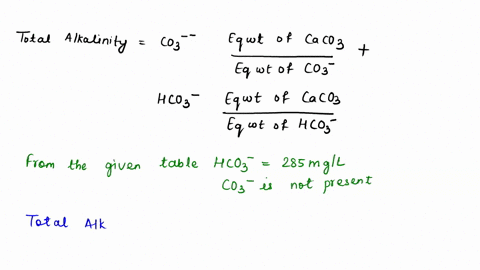 Total Alkalinity = CO3-- Eqwt of CaCO3 +
Eqwt of CO3-
HCO3- Eqwt of CaCO3
Eqwt of HCO3-
From the given table HCO3- = 285 mg/L
CO3- is not present
Total Alk